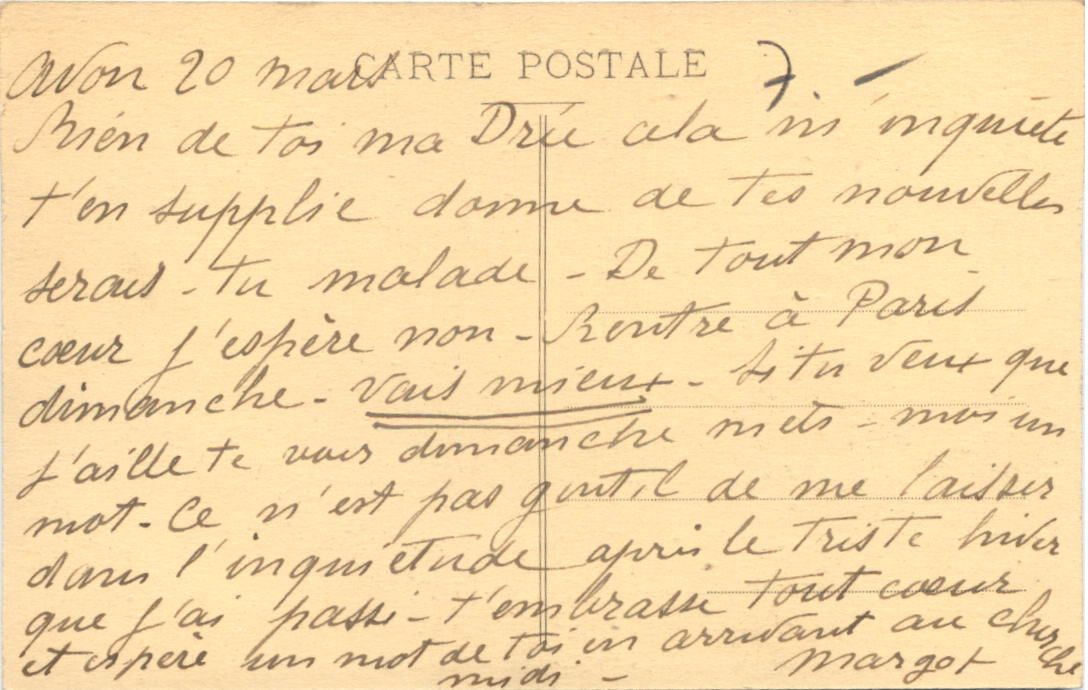 Avon 20 mars CARTE POSTALE 7 -
Rien de toi ma Drée cela m'inquiète
t'en supplie donne de tes nouvelles
serais-tu malade - De tout mon
cœur j'espère non - Rentre à Paris
dimanche - vais mieux - Si tu veux que
j'aille te voir dimanche mets-moi un
mot - Ce n'est pas gentil de me laisser
dans l'inquiétude après le triste hiver
que j'ai passé - t'embrasse tout cœur
et espère un mot de toi en arrivant au cherche
midi - Margot